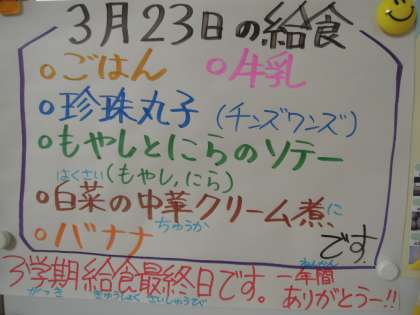 3月23日の給食
○ごはん ○牛乳
○珍珠丸子(チンズワンズ)
○もやしとにらのソテー
(もやし,にら)
はくさい
○白菜の中華クリーム煮に
ちゅうか
○バナナ です。
3学期給食最終日です。一年間
がっき きゅうしょく さいしゅうび ねんかん
ありがとう一!!